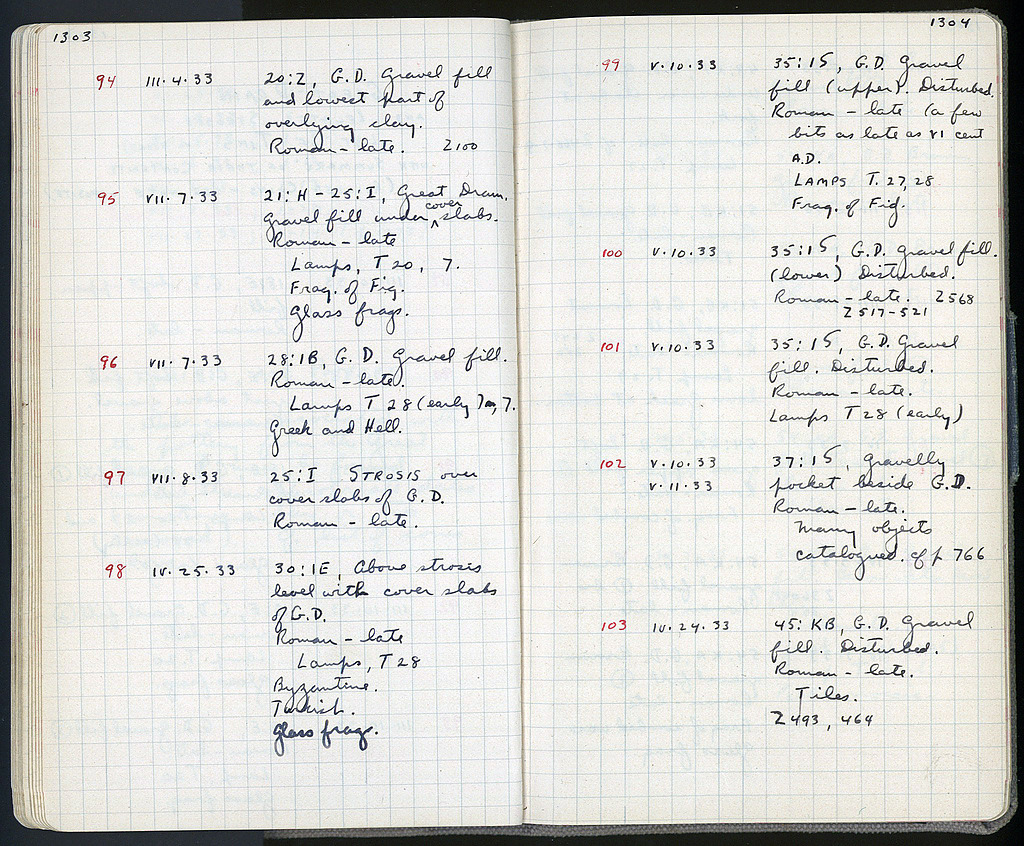 1303
94 III.4.33 20:Z, G.D. Gravel fill
and lowest part of
overlying clay.
Roman – late. Z100
95 VII.7.33 21:H – 25:I, Great Drain.
Gravel fill under cover slabs.
Roman – late
Lamps, T 20, 7.
Frag. of Fig.
Glass frags.
96 VII.7.33 28:IB, G.D. Gravel fill.
Roman – late.
Lamps T 28 (early), 7.
Greek and Hell.
97 VII.8.33 25:I STROSIS over
cover slabs of G.D.
Roman – late.
98 IV.25.33 30:IE, Above strosis
level with cover slabs
of G.D.
Roman – late
Lamps, T 28
Byzantine.
Turkish.
Glass frags.
1304
99 V.10.33 35:15, G.D. Gravel
fill (upper). Disturbed.
Roman – late (a few
bits as late as VI cent
A.D.
LAMPS T. 27, 28.
Frag. of Fig.
100 V.10.33 35:15, G.D. Gravel fill.
(lower) Disturbed.
Roman – late. Z568
Z517–521
101 V.10.33 35:15, G.D. Gravel
fill. Disturbed.
Roman – late.
Lamps T 28 (early)
102 V.10.33 37:15, gravelly
V.11.33 pocket beside G.D.
Roman – late.
Many objects
catalogued. cf p 766
103 IV.24.33 45:KB, G.D. Gravel
fill. Disturbed.
Roman – late.
Tiles.
Z493, 464